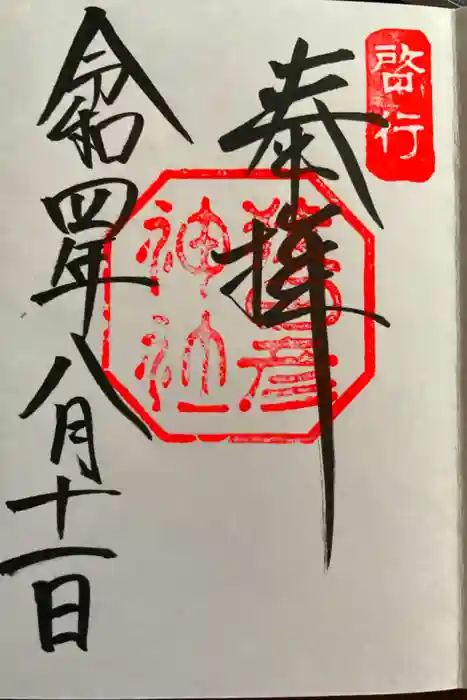 啓行
奉拝
猿田彦
神社
令和四年八月十一日